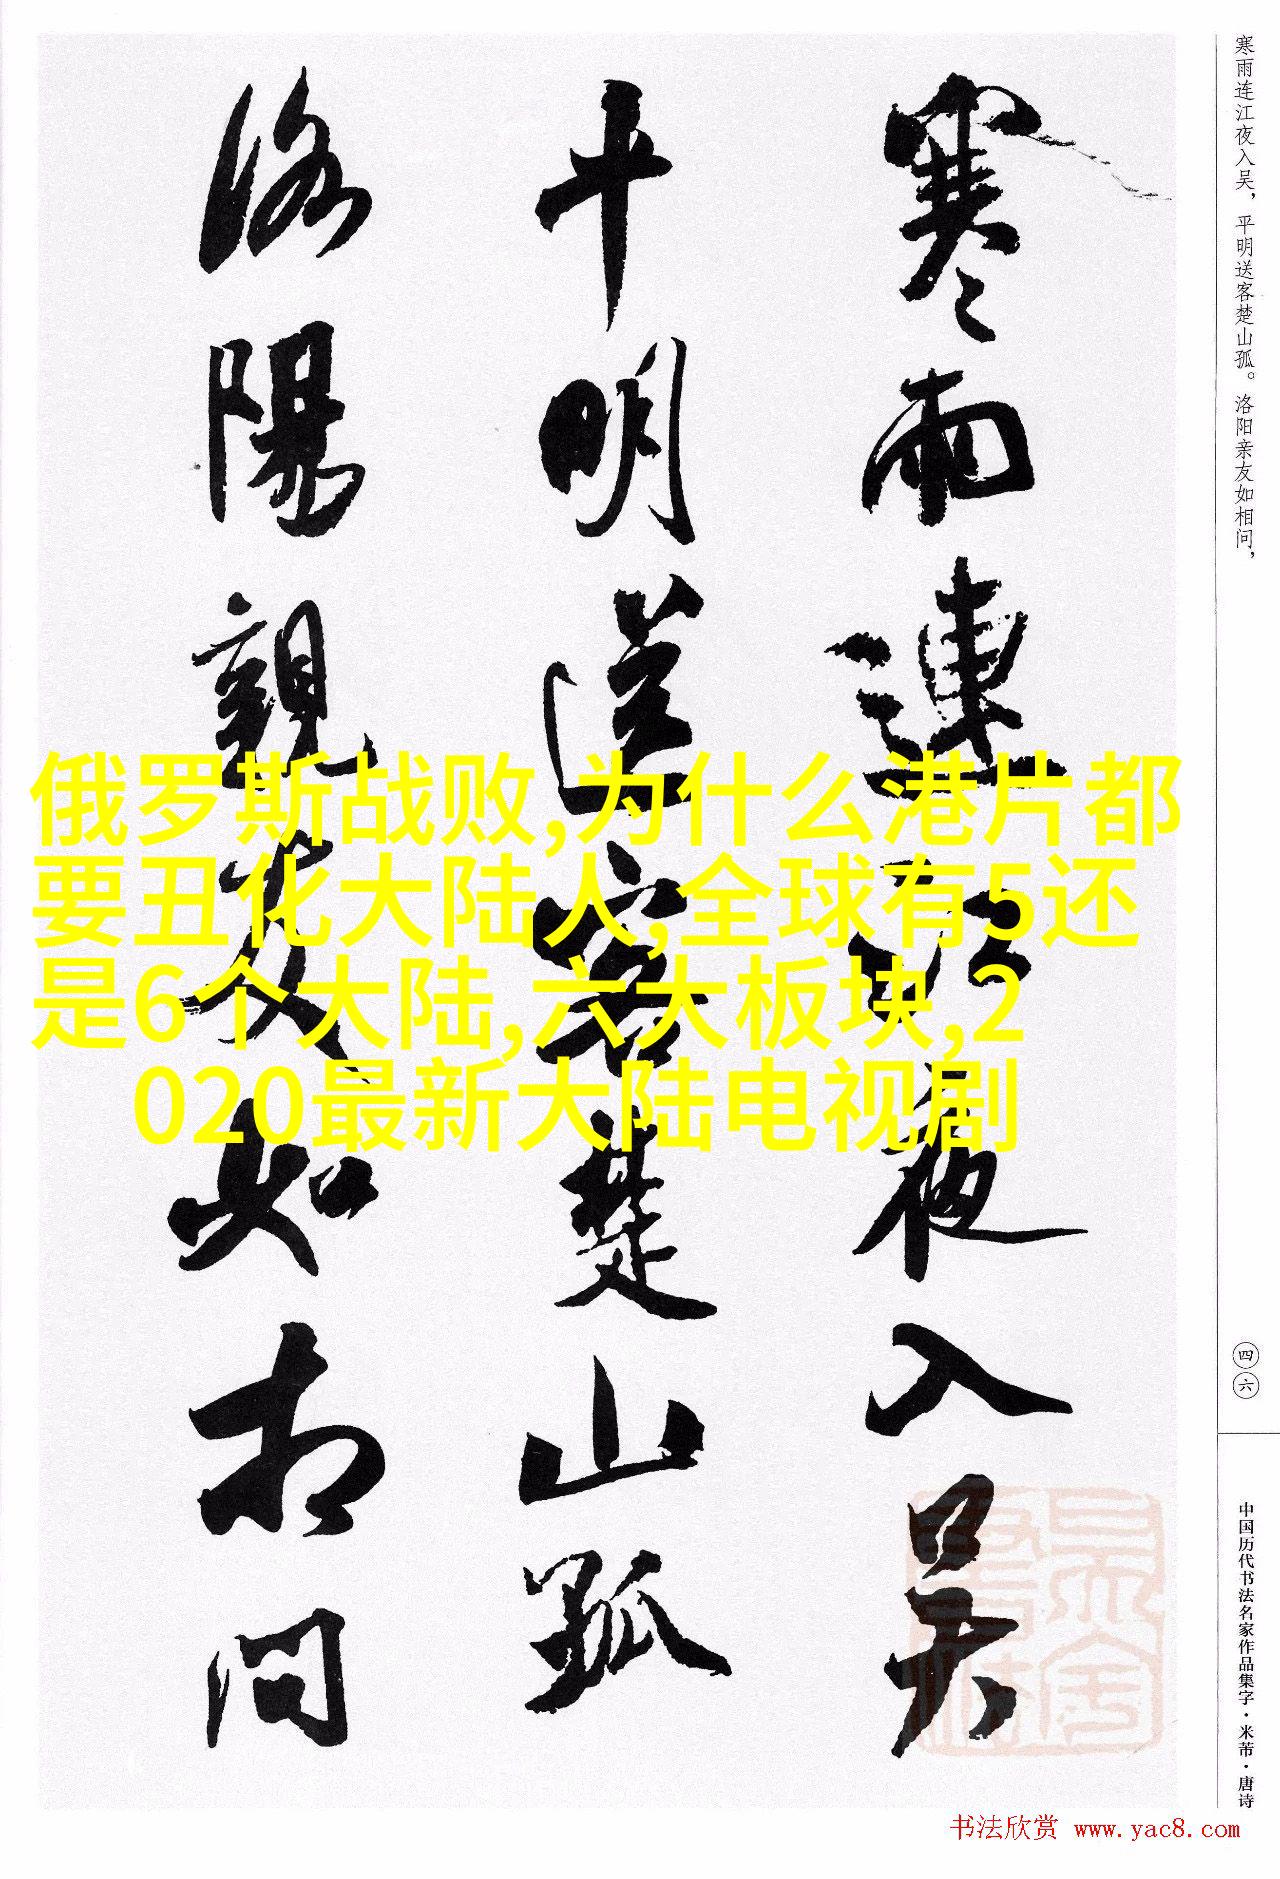 寒雨連江夜入吳
平明送客楚山孤
洛陽親友如相問
寒雨连江夜入吴，平明送客楚山孤。洛阳亲友如相问，
四六
中国历代书法名家作品集字·米芾·唐诗
俄罗斯战败,为什么港片都
要丑化大陆人,全球有5还
是6个大陆,六大板块,2
020最新大陆电视剧
书法欣赏 www.yac8.com